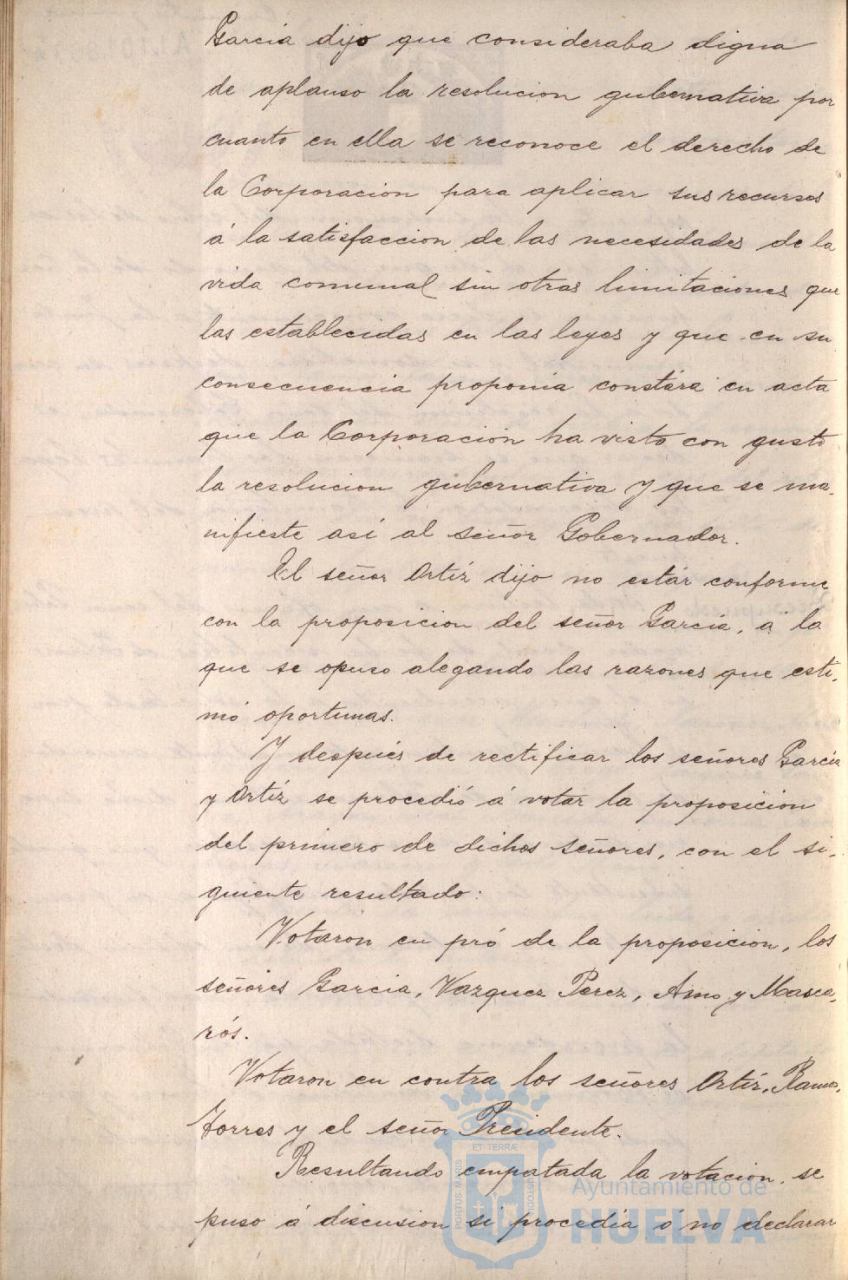 García dijo que consideraba digna
de aplauso la resolucion gubernativa por
cuanto en ella se reconoce el derecho de
la Corporación para aplicar sus recursos
á la satisfaccion de las necesidades de la
vida comunal sin otras limitaciones que
las establecidas en las leyes y que en su
consecuencia proponia constára en acta
que la Corporación ha visto con gusto
la resolucion gubernativa y que se ma-
nifieste así al señor Gobernador.
El señor Ortíz dijo no estár conforme
con la proposicion del señor García, á la
que se opuso alegando las razones que esti-
mó oportunas.
Y después de rectificar los señores García
y Ortíz se procedió á votar la proposicion
del primero de dichos señores, con el si-
guiente resultado:
Votaron en pró de la proposicion, los
señores Garcia, Vazquez Perez, Amo y Masca-
rós.
Votaron en contra los señores Ortíz,
Torres y el señor Presidente.
Resultando empatada la votacion, se
puso á discusion si procedia ó no declarar
PORTUS MARIS
ET TERRÆ
CUSTODIA
Ayuntamiento de
HUELVA